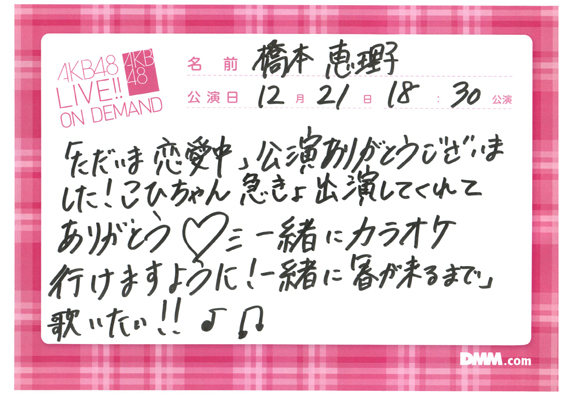 AKB48
LIVE!!
ON DEMAND
AKB
48
名前 橋本 恵理子
公演日 12月21日18:30公演
「ただいま 恋愛中」公演ありがとうございま
した！こひちゃん 急きょ 出演してくれて
ありがとう♡ 一緒にカラオケ
行けますように！一緒に「春が来るまで」
歌いたい!! ♪ ♫
DMM.com